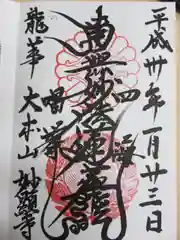 平成卅年一月廿三日
四海
南無妙法蓮華経
唱導
大本山 妙顕寺
龍華